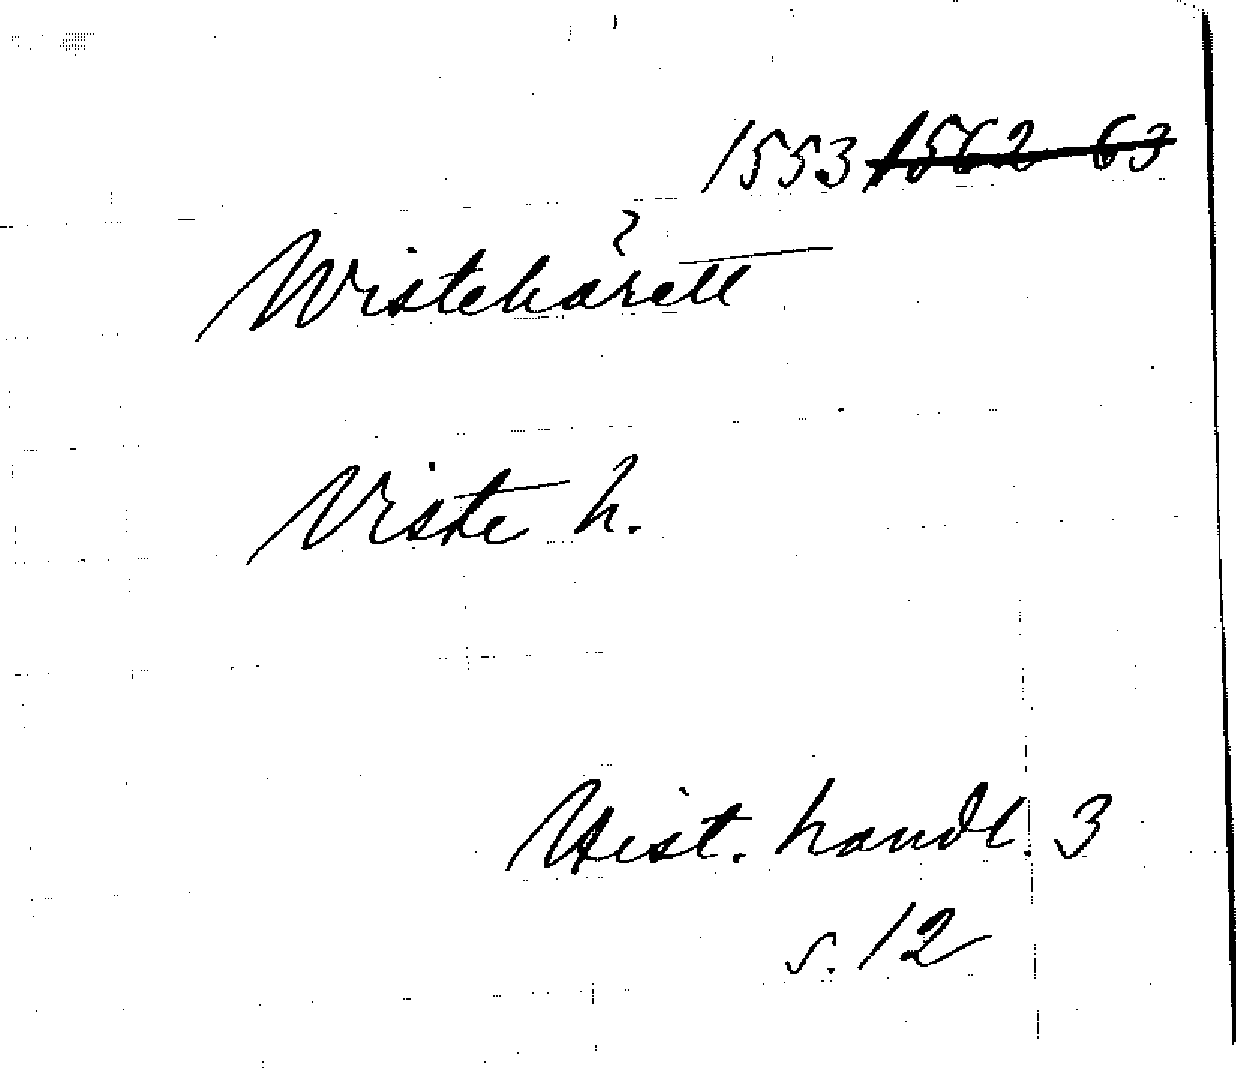 1553 1562-63
Wistehärett
Viste h.
Hist. handl. 3
s. 12